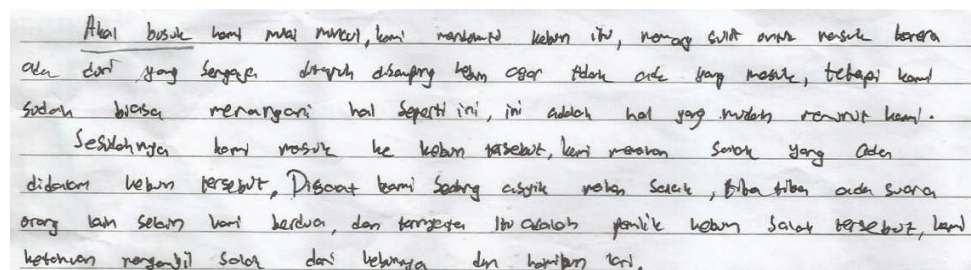 Akal busuk kami mulai muncul, kami memasuki kebun itu, memang sulit untuk masuk karena
ada duri yang sengaja ditaruh disamping kebun agar tidak ada yang masuk, tetapi kami
sudah biasa menangani hal seperti ini, ini adalah hal yang mudah menurut kami.
Sesudahnya kami masuk ke kebun tersebut, kami memakan salak yang ada
didalam kebun tersebut, Disaat kami sedang asyik makan salak, tiba tiba ada suara
orang lain selain kami berdua, dan ternyata itu adalah pemilik kebun salak tersebut, kami
ketahuan mengambil salak dari kebunnya dan kamipun lari.